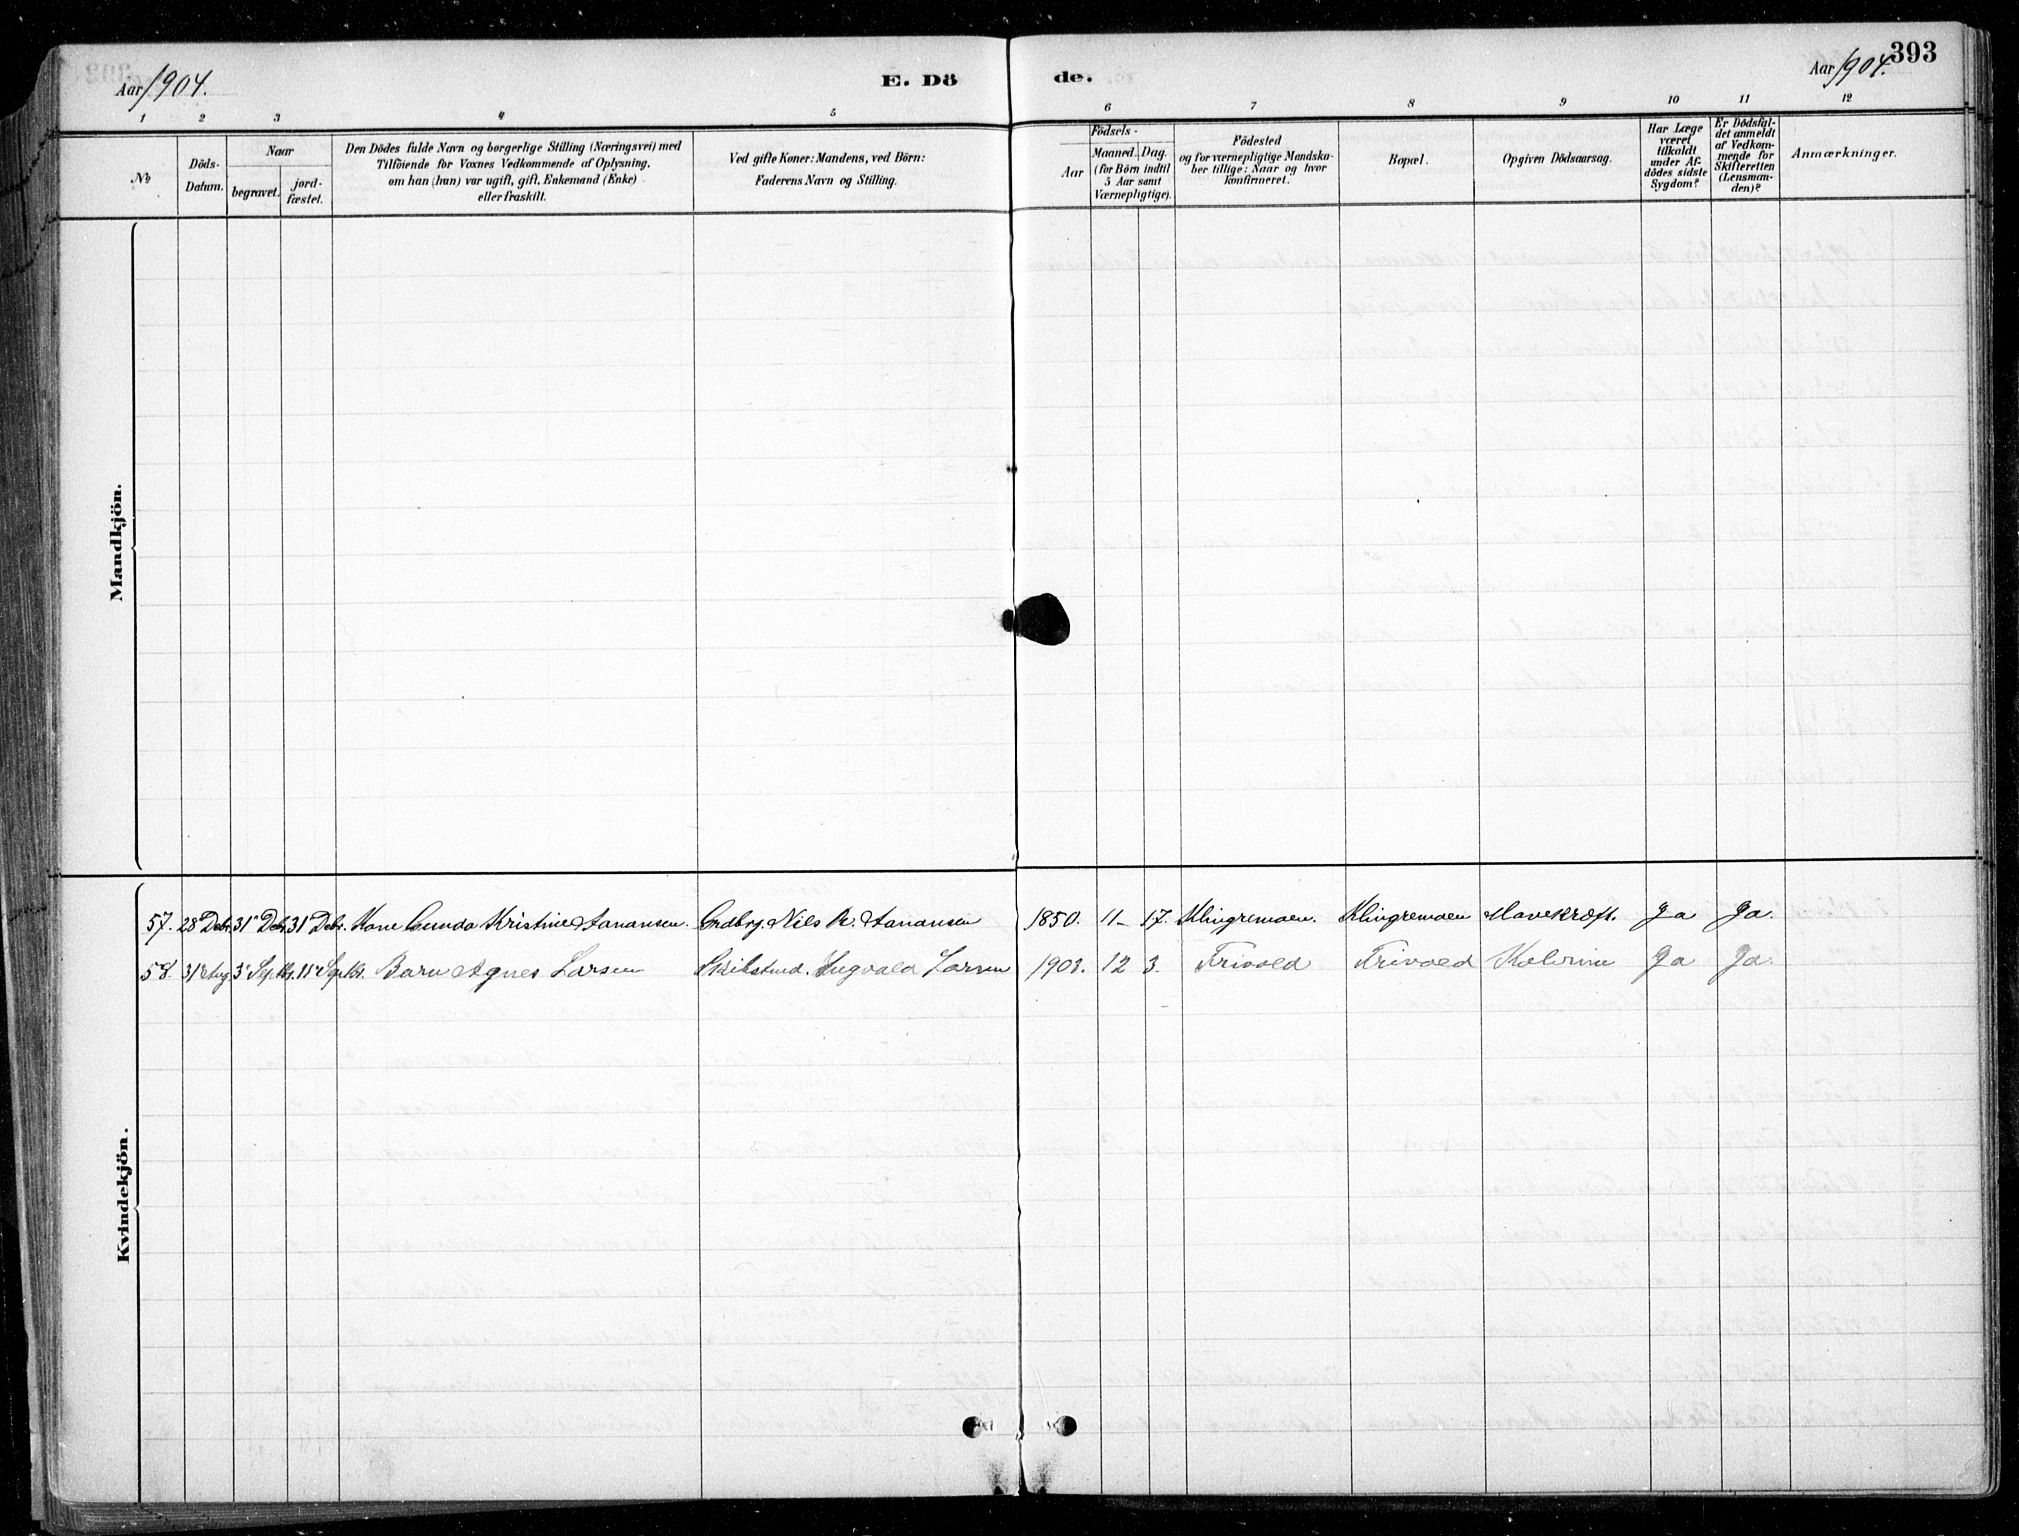 393
Aar 1904.
E. Dö
de.
Aar 1904.
1 2 3 4 5 6 7 8 9 10 11 12
No
Döds-
Datum.
Naar
begravet.
jord-
fæstet.
Den Dödes fulde Navn og borgerlige Stilling (Næringsvei) med
Tilföiende for Voxnes Vedkommende af Oplysning,
om han (hun) var ugift, gift, Enkemand (Enke)
eller fraskilt.
Ved gifte Koner: Mandens, ved Börn:
Faderens Navn og Stilling.
Födsels-
Aar
Maaned. Dag.
(for Börn indtil
5 Aar samt
Værnepligtige).
Födested
og for værnepligtige Mandska-
ber tillige: Naar og hvor
konfirmeret.
Bopæl.
Opgiven Dödsaarsag.
Har Læge
været
tilkaldt
under Af-
dödes sidste
Sygdom?
Er Dödsfal-
det anmeldt
af Vedkom-
mende for
Skifteretten
(Lensman-
den)?
Anmærkninger.
Mandkjön.
Kvindekjön.
57. 28 Dcbr. 31 Dcbr. 31 Dcbr. Kone Gunda Kristine Aanansen. Grdbrg. Nils R. Aanansen 1850. 11 17. Klingremoen. Klingremoen Mavekræft. Ja Ja.
58. 31 Aug. 3 Septbr. 11 Septbr. Barn Agnes Larsen Skibstmd. Ingvald Larsen 1903. 12 3. Trivold Trivold Kolerine Ja Ja.